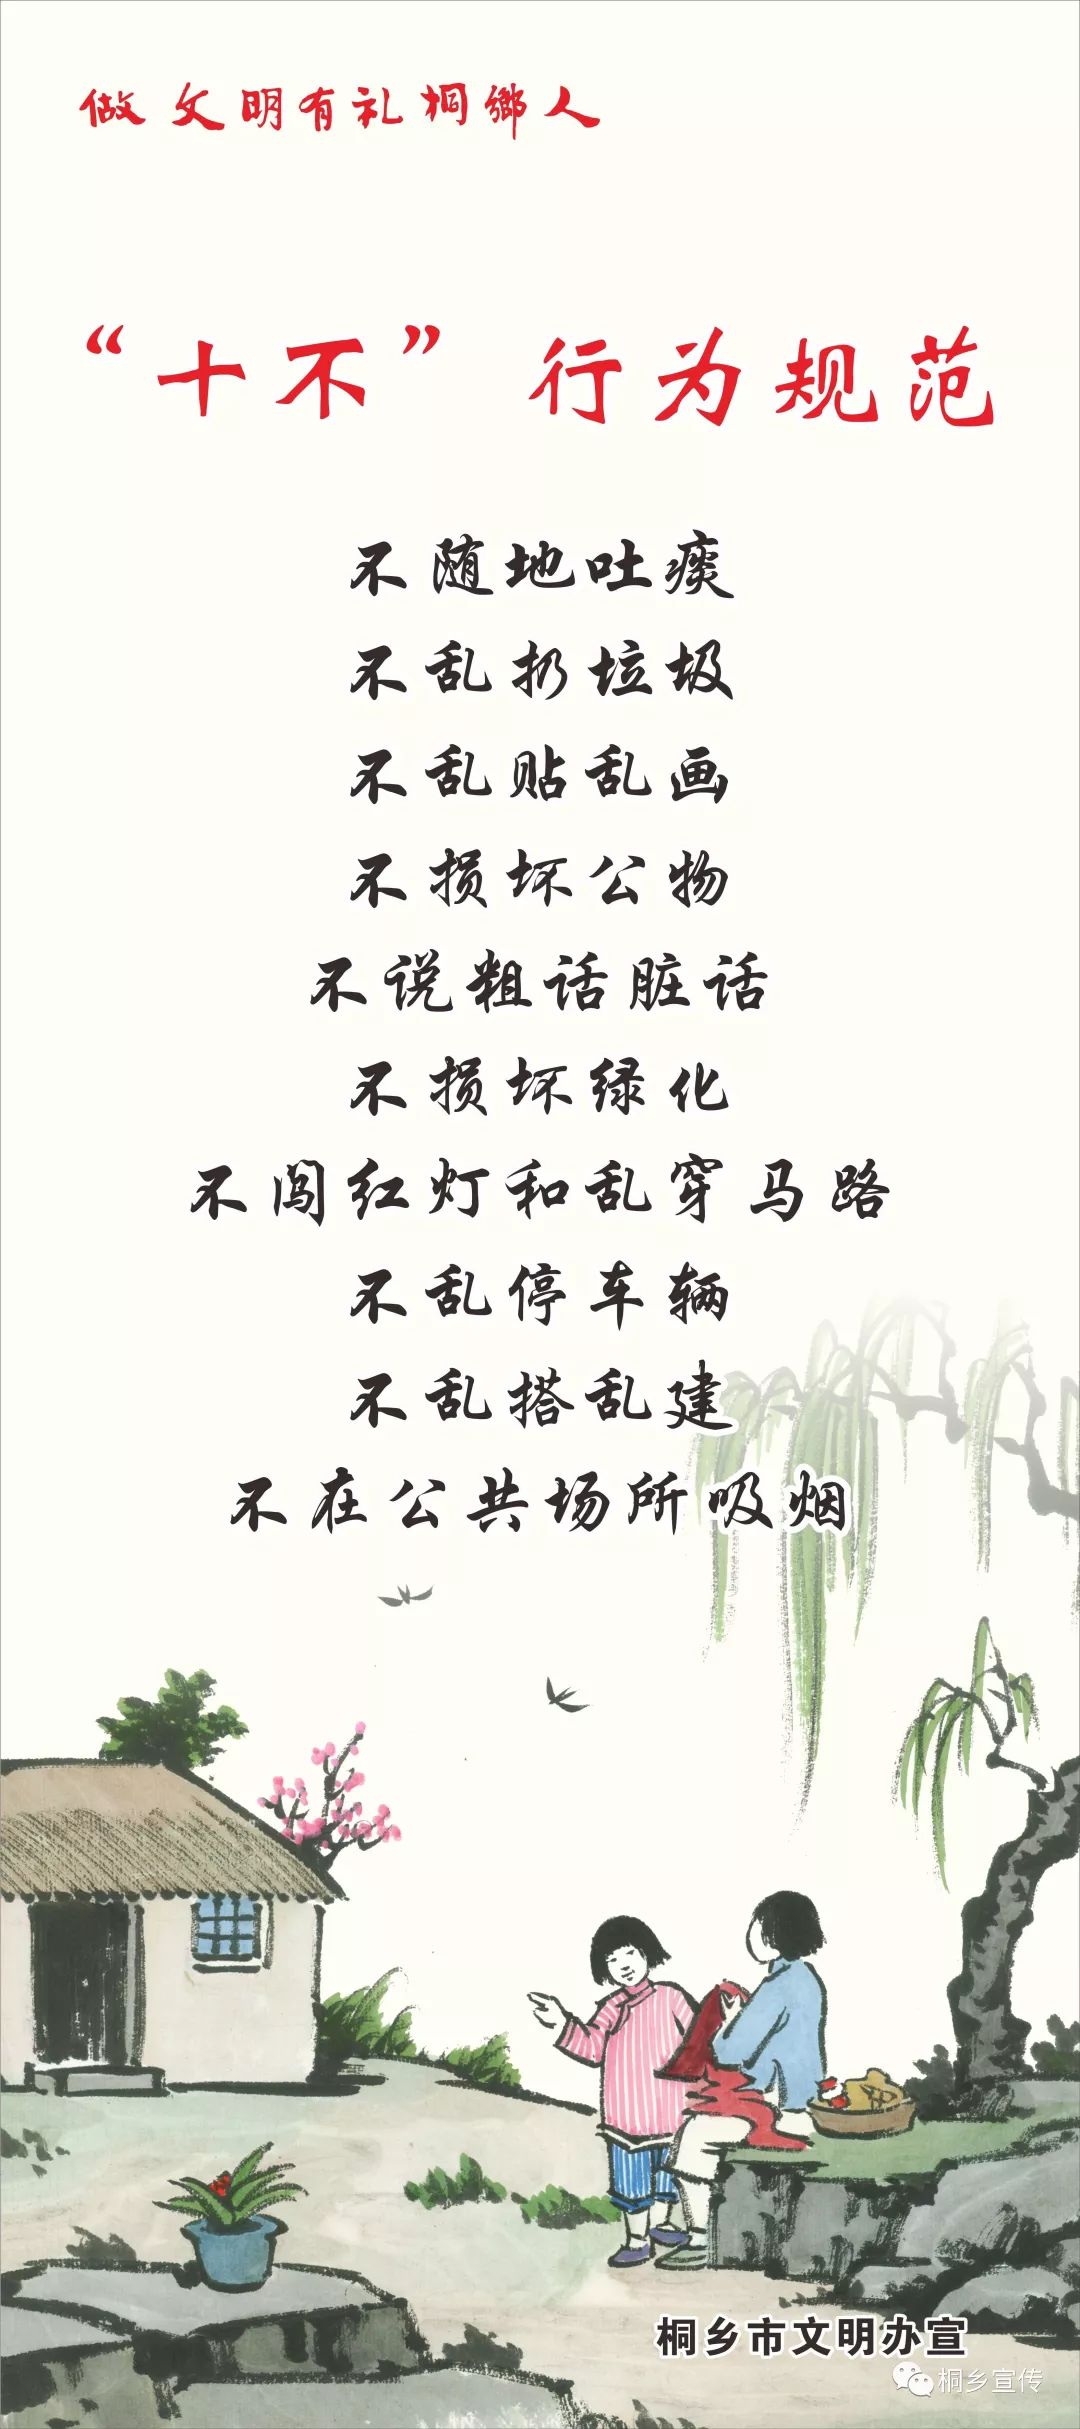 做文明有礼桐鄉人
“十不”行为规范
不随地吐痰
不乱扔垃圾
不乱贴乱画
不损坏公物
不说粗话脏话
不损坏绿化
不闯红灯和乱穿马路
不乱停车辆
不乱搭乱建
不在公共场所吸烟
桐乡市文明办宣
桐乡宣传